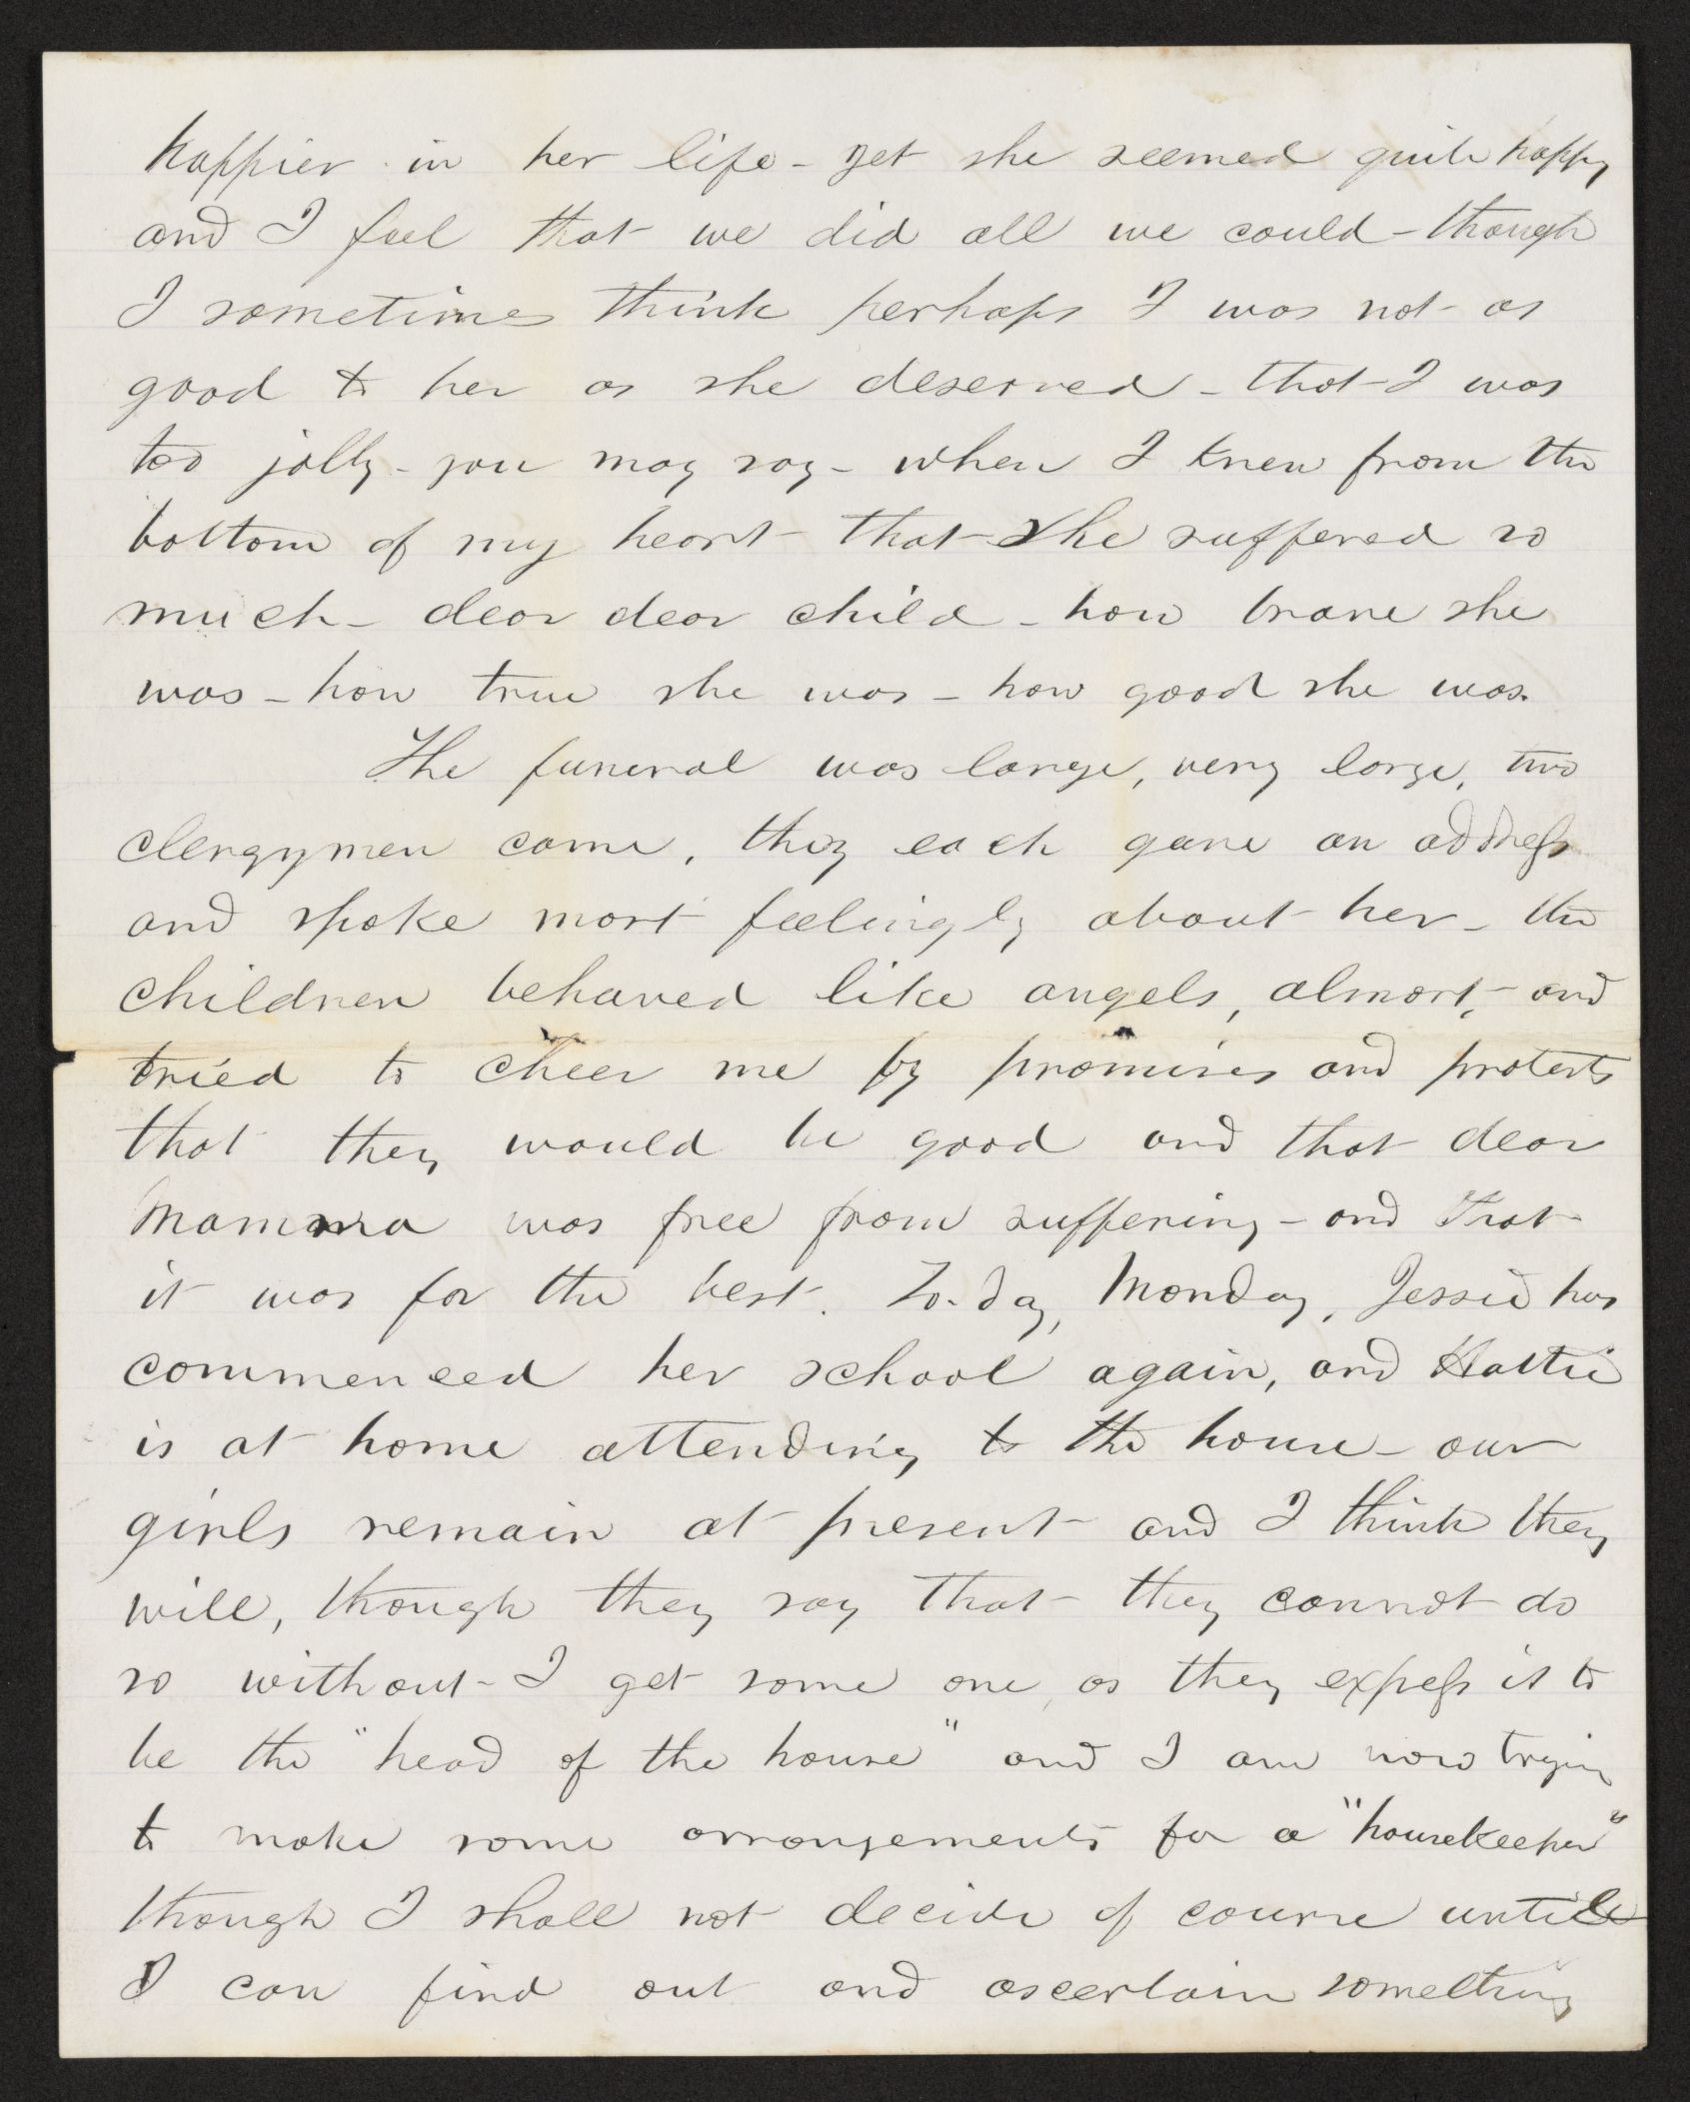 happier in her life - yet she seemed quite happy
and I feel that we did all we could - though
I sometimes think perhaps I was not as
good to her as she deserved - that I was
too jolly - you may say - when I knew from the
bottom of my heart that she suffered so
much - dear dear child - how brave she
was - how true she was - how good she was.
The funeral was large, very large, two
clergymen came, they each gave an address
and spoke most feelingly about her - the
children behaved like angels, almost, - and
tried to cheer me by promises and protests
that they would be good and that dear
Mamma was free from suffering - and that
it was for the best. To-day, Monday, Jessie has
commenced her school again, and Hattie
is at home attending to the house - our
girls remain at present - and I think they
will, though they say that they cannot do
so without - I get some one, as they express it to
be the "head of the house" and I am now trying
to make some arrangements for a "housekeeper"
though I shall not decide of course untill
I can find out and ascertain something